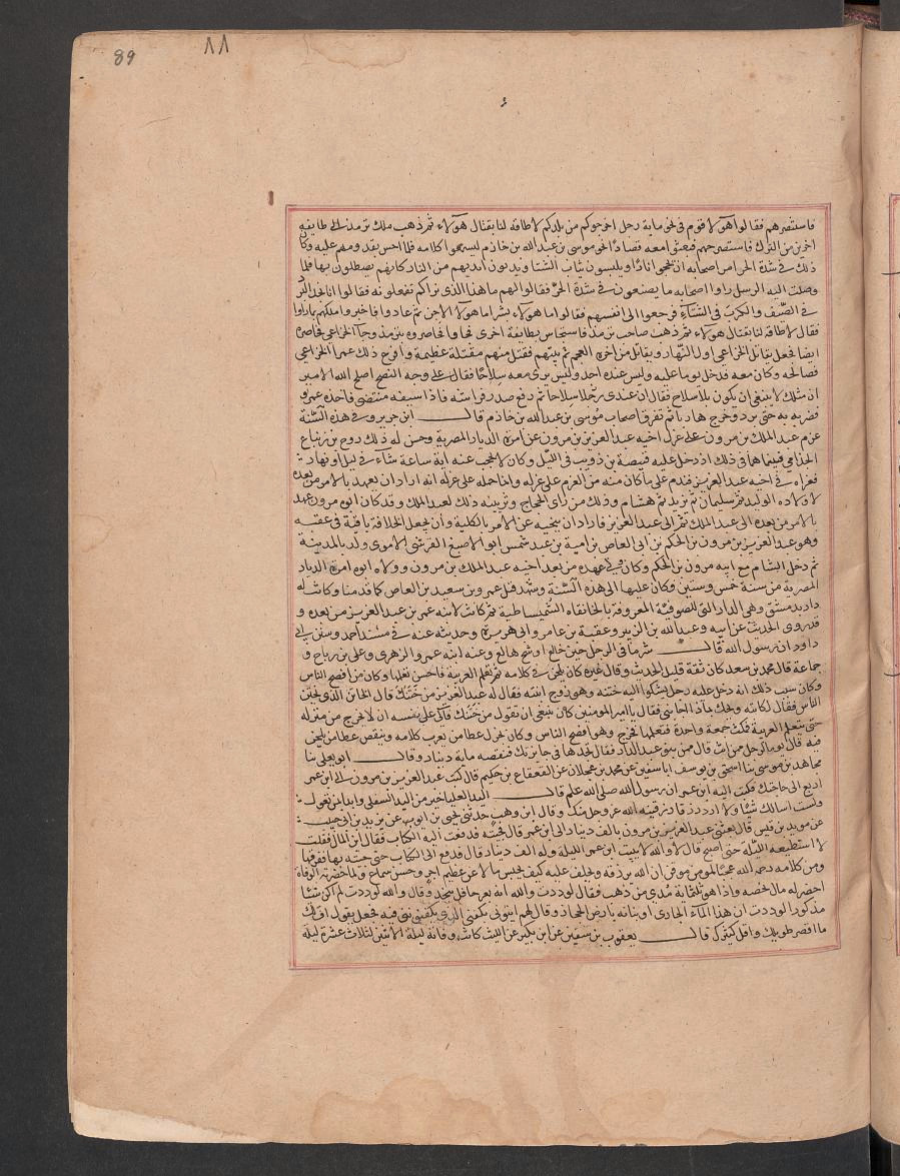 89
٨٨
فاستنصرهم فقالوا هولا قوم في نحو ماية رجل اخرجوكم من بلدكم لا طاقه لنا بقتال هولاء ثم ذهب ملك ترمذ الى طايفه
اخرين من الترك فاستصرخهم فبعثوا معه قصادًا نحو موسى بن عبد الله بن خازم ليسمعوا كلامه فلما احس بقدومهم عليه وكان
ذلك في شدة الحر امر اصحابه ان يؤججوا نارًا ويلبسون ثياب الشتا ويدنون ايديهم من النار كانهم يصطلون بها فلما
وصلت اليه الرسل راوا اصحابه ما يصنعون في شدة الحر فقالوا لهم ما هذا الذي نراكم تفعلونه فقالوا انا نجد البرد
في الصيف والكرب في الشتاء فرجعوا الى انفسهم فقالوا ما هولاء بشر اما هولا الا جن ثم عادوا فاخبروا ملكهم بما راوا
فقال لا طاقة لنا بقتال هولاء ثم ذهب صاحب ترمذ فاستجاش بطايفة اخرى فجاوا فحاصروه بترمذ وجآ الخزاعي فحاصره
ايضا فجعل يقاتل الخزاعي اول النهار ويقاتل من اخره العجم ثم بيتهم فقتل منهم مقتلة عظيمة وافزع ذلك عمرا الخزاعي
فصالحه وكان معه فدخل يوما عليه وليس عنده احد وليس يرى معه سلاحًا فقال على وجه النصح اصلح الله الامير
ان مثلك لا ينبغي ان يكون بلا سلاح فقال ان عندى سلاحا ثم رفع صدر فراشه فاذا سيفه منتضى فاخذه عمرو
فضربه به حتى برد وخرج هاربا ثم تفرق اصحاب موسى بن عبد الله بن خازم قال ابن جرير وفي هذه السنة
عزم عبد الملك بن مروان على عزل اخيه عبد العزيز بن مروان عن امرة الديار المصرية وحسن له ذلك روح بن زنباع
الجذامي فبينما هما في ذلك اذ دخل عليه قبيصة بن ذويب في الليل وكان لا يحجب عنه اية ساعة شاء في ليل او نهار
فعزاه في اخيه عبد العزيز فندم على ما كان منه من العزم على عزله وانما حمله على عزله انه اراد ان يعهد بالامر من بعده
لاولاده الوليد ثم سليمان ثم يزيد ثم هشام وذلك عن راى الحجاج وترتيبه ذلك لعبد الملك وقد كان ابوه مروان عهد
بالامر من بعده الى عبد الملك ثم الى عبد العزيز فاراد ان ينحيه عن الامر بالكلية وأن يجعل الخلافة باقية في عقبه
وهو عبد العزيز بن مروان بن الحكم بن ابى العاص بن امية بن عبد شمس ابو الاصبغ القرشي الاموى ولد بالمدينة
ثم دخل الشام مع ابيه مروان بن الحكم وكان ولي عهده من بعد اخيه عبد الملك بن مروان وولاه ابوه امرة الديار
المصرية من سنة خمس وستين وكان عليها الى هذه السنة وشهد قتل عمرو بن سعيد بن العاص كما قدمنا وكانت له
دار بدمشق وهي الدار التي للصوفية المعروفة بالخانقاه السميساطية ثم كانت لابنه عمر بن عبد العزيز من بعده و
قد روى الحديث عن ابيه وعبد الله بن الزبير وعقبة بن عامر وابى هريرة وحديثه عنه في مسند احمد وسنن ابى
داود ان رسول الله قال شر ما في الرجل جبن خالع او شح هالع وعنه ابنه عمر والزهرى وعلى بن رباح و
جماعة قال محمد بن سعد كان ثقة قليل الحديث وقال غيره كان يلحن في كلامه ثم تعلم العربية فاحسن تعلمها وكان من افصح الناس
وكان سبب ذلك انه دخل عليه رجل يشكوا اليه ختنه وهو زوج ابنته فقال له عبد العزيز من ختنك قال الخاتن الذى يختن
الناس فقال لكاتبه ويحك ماذا اجابنى فقال يا امير المومنين كان ينبغي ان تقول من ختنك فآلى على نفسه ان لا يخرج من منزله
حتى يتعلم العربية فمكث جمعة واحدة فتعلمها فخرج وهو افصح الناس وكان يجزل عطا من يعرب كلامه وينقص عطا من يلحن
فيه قال يوما لرجل ممن انت قال من بنو عبد الدار فقال تجدها في جايزتك فنقصه ماية دينار وقال ابو يعلى نا
مجاهد بن موسى نا اسحق بن يوسف انا سفين عن محمد بن عجلان عن القعقاع بن حكيم قال كتب عبد العزيز بن مروان الى ابن عمر
ارفع الى حاجتك فكتب اليه ابن عمر ان رسول الله صلى الله عليه وسلم قال اليد العليا خير من اليد السفلى وابدا بمن تعول
ولست اسالك شيًا ولا ارد رزقا رزقنيه الله عز وجل منك وقال ابن وهب حدثنى يحيى بن ايوب عن يزيد بن ابى حبيب
عن سويد بن قيس قال بعثنى عبد العزيز بن مروان بالف دينار الى ابن عمر قال فجئته فدفعت اليه الكتاب فقال اين المال فقلت
لا استطيعه الليلة حتى اصبح قال لا والله لا يبيت ابن عمر الليلة وله الف دينار قال فدفع الى الكتاب حتى جئته بها ففرقها
ومن كلامه رحمه الله عجبًا لمومن موقن ان الله يرزقه ويخلف عليه كيف يحبس مالا عن عظيم اجر وحسن سماع ولما حضرته الوفاة
احضر له مال يخصه واذا هو ثلثماية مُدي من ذهب فقال لوددت والله انه بعر حايل بنجد وقال والله لوددت لم اكن شيًا
مذكورا لوددت ان هذا الماء الجارى او نباته بارض الحجاز وقال لهم ايتونى بكفنى الذى تكفنونى فيه فجعل يقول اف لك
ما اقصر طويلك واقل كثيرك قال يعقوب بن سفين عن ابن بكير عن الليث كانت وفاته ليلة الاثنين لثلاث عشرة ليلة